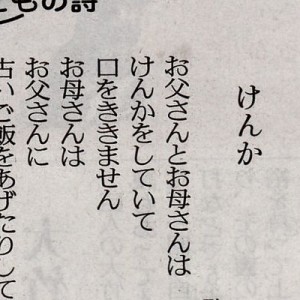 もの詩
けんか
お父さんとお母さんは
けんかをしていて
口をききません
お母さんは
お父さんに
古いご飯をあげたりして